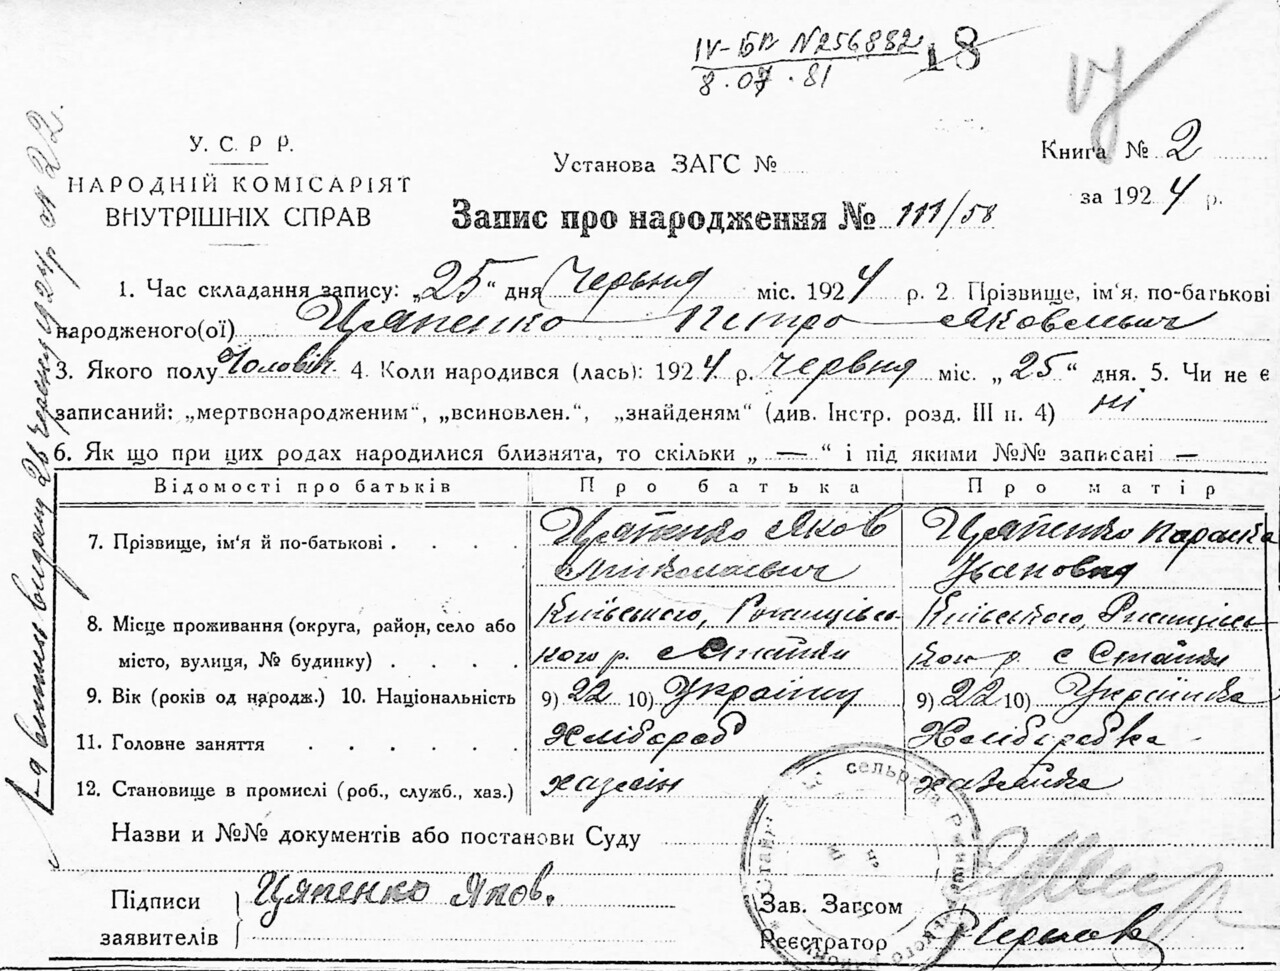 IV-БП N256882
8.07.81
18
У. С. Р. Р.
НАРОДНІЙ КОМІСАРІЯТ
ВНУТРІШНІХ СПРАВ
Установа ЗАГС №
Книга № 2
за 1924 р.
Запис про народження № 111/58
1. Час складання запису: „25“ дня Червня міс. 1924 р. 2. Прізвище, ім‘я, по-батькові
народженого(ої) Цяпенко Петро Яковлевич
3. Якого полу Чоловіч. 4. Коли народився (лась): 1924 р. Червня міс. „25“ дня. 5. Чи не є
записаний: „мертвонародженим“, „всиновлен.“, „знайденям“ (див. Інстр. розд. III п. 4) ні
6. Як що при цих родах народилися близнята, то скільки „ — “ і під якими №№ записані —
Відомості про батьків Про батька Про матір
7. Прізвище, ім‘я й по-батькові . . . . Цяпенко Яков Цяпенко Параска
Миколаевич Ивановна
8. Місце проживання (округа, район, село або Київського, Ржищівсь- Київського, Ржищівсь-
місто, вулиця, № будинку) . . . . кого р. с Стайки кого р. с Стайки
9. Вік (років од народж.) 10. Національність 9) 22 10) Українц 9) 22 10) Українка
11. Головне заняття . . . . . Хлібороб Хлібо­робка
12. Становище в промислі (роб., служб., хаз.) хазяін хазяйка
Назви и №№ документів або постанови Суду
Підписи
заявителів
Цяпенко Яков.
Зав. Загсом
Реєстратор
сельрада
1-а випись видана 26 червня 1924 р за N 22.